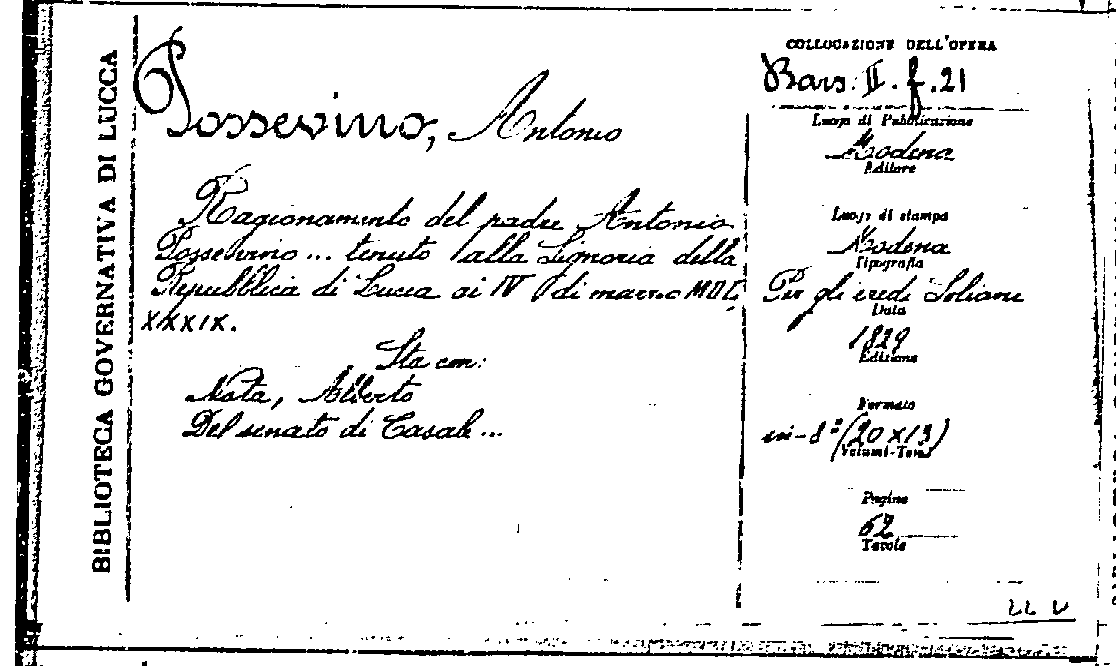 BIBLIOTECA GOVERNATIVA DI LUCCA
Possevino, Antonio
Ragionamento del padre Antonio
Possevino... tenuto alla Signoria della
Repubblica di Lucca ai IV di marzo MDL
XXXIX.
Sta con:
Nota, Alberto
Del senato di Casale...
COLLOCAZIONE DELL'OPERA
Bars. II. f. 21
Luogo di Pubblicazione
Modena
Editore
Luogo di stampa
Modena
Tipografia
Per gli eredi Soliani
Data
1829
Edizione
Formato
in-8° (20x13)
Volumi-Tomi
Pagine
62
Tavole